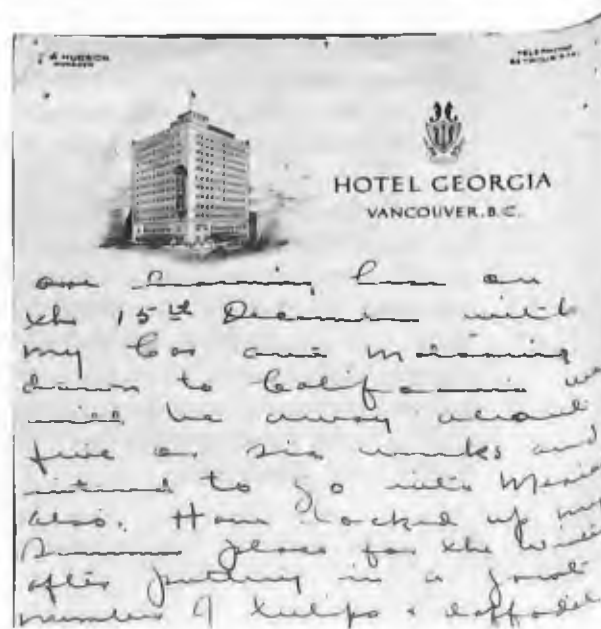 HUDSON
MANAGER
TELEPHONE
HOTEL GEORGIA
VANCOUVER, B.C.
am leaving here on
the 15th December with
my Car and motoring
down to California we
will be away about
five or six weeks and
intend to go into
also. Have locked up my
Summer place for the
after putting in a
number of tulips &